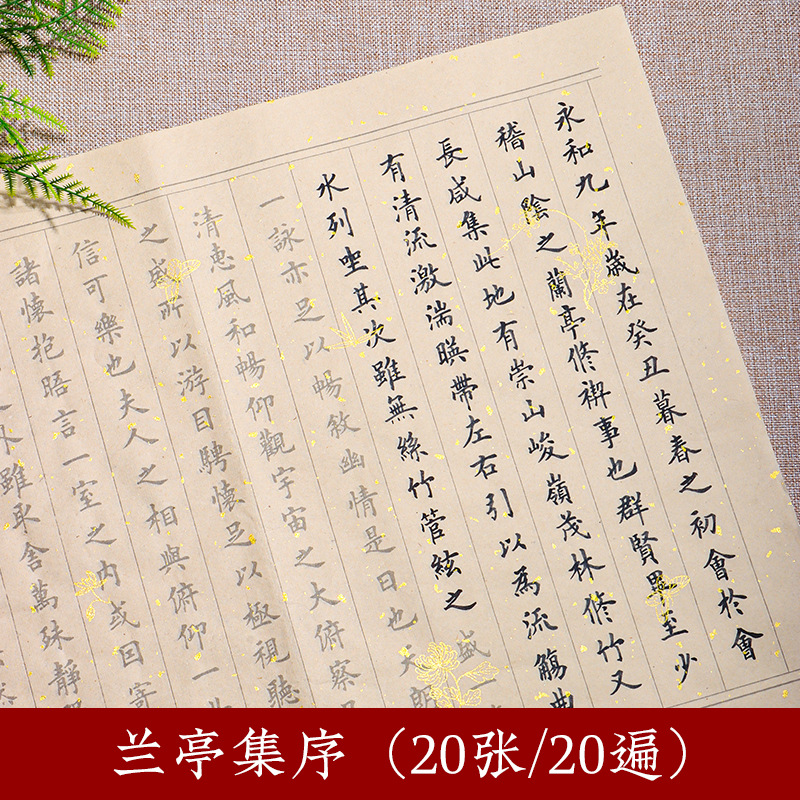 永和九年歲在癸丑暮春之初會於會
稽山陰之蘭亭修禊事也群賢畢至少
長咸集此地有崇山峻嶺茂林修竹又
有清流激湍暎帶左右引以為流觴曲
水列坐其次雖無絲竹管絃之盛
一詠亦足以暢敘幽情是日也天朗
清惠風和暢仰觀宇宙之大俯察
之盛所以游目騁懷足以極視聽
信可樂也夫人之相與俯仰一
諸懷抱晤言一室之內或因寄
外雖取舍萬殊靜
兰亭集序（20张/20遍）